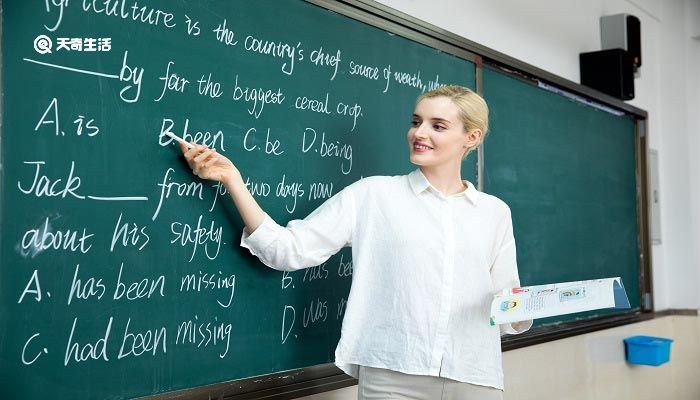 天奇生活
Agriculture is the country's chief source of weath,
by far the biggest cereal crop.
A. is B. been C. be D. being
Jack from for two days now
about his safety.
A. has been missing B. has been
C. had been missing D. was